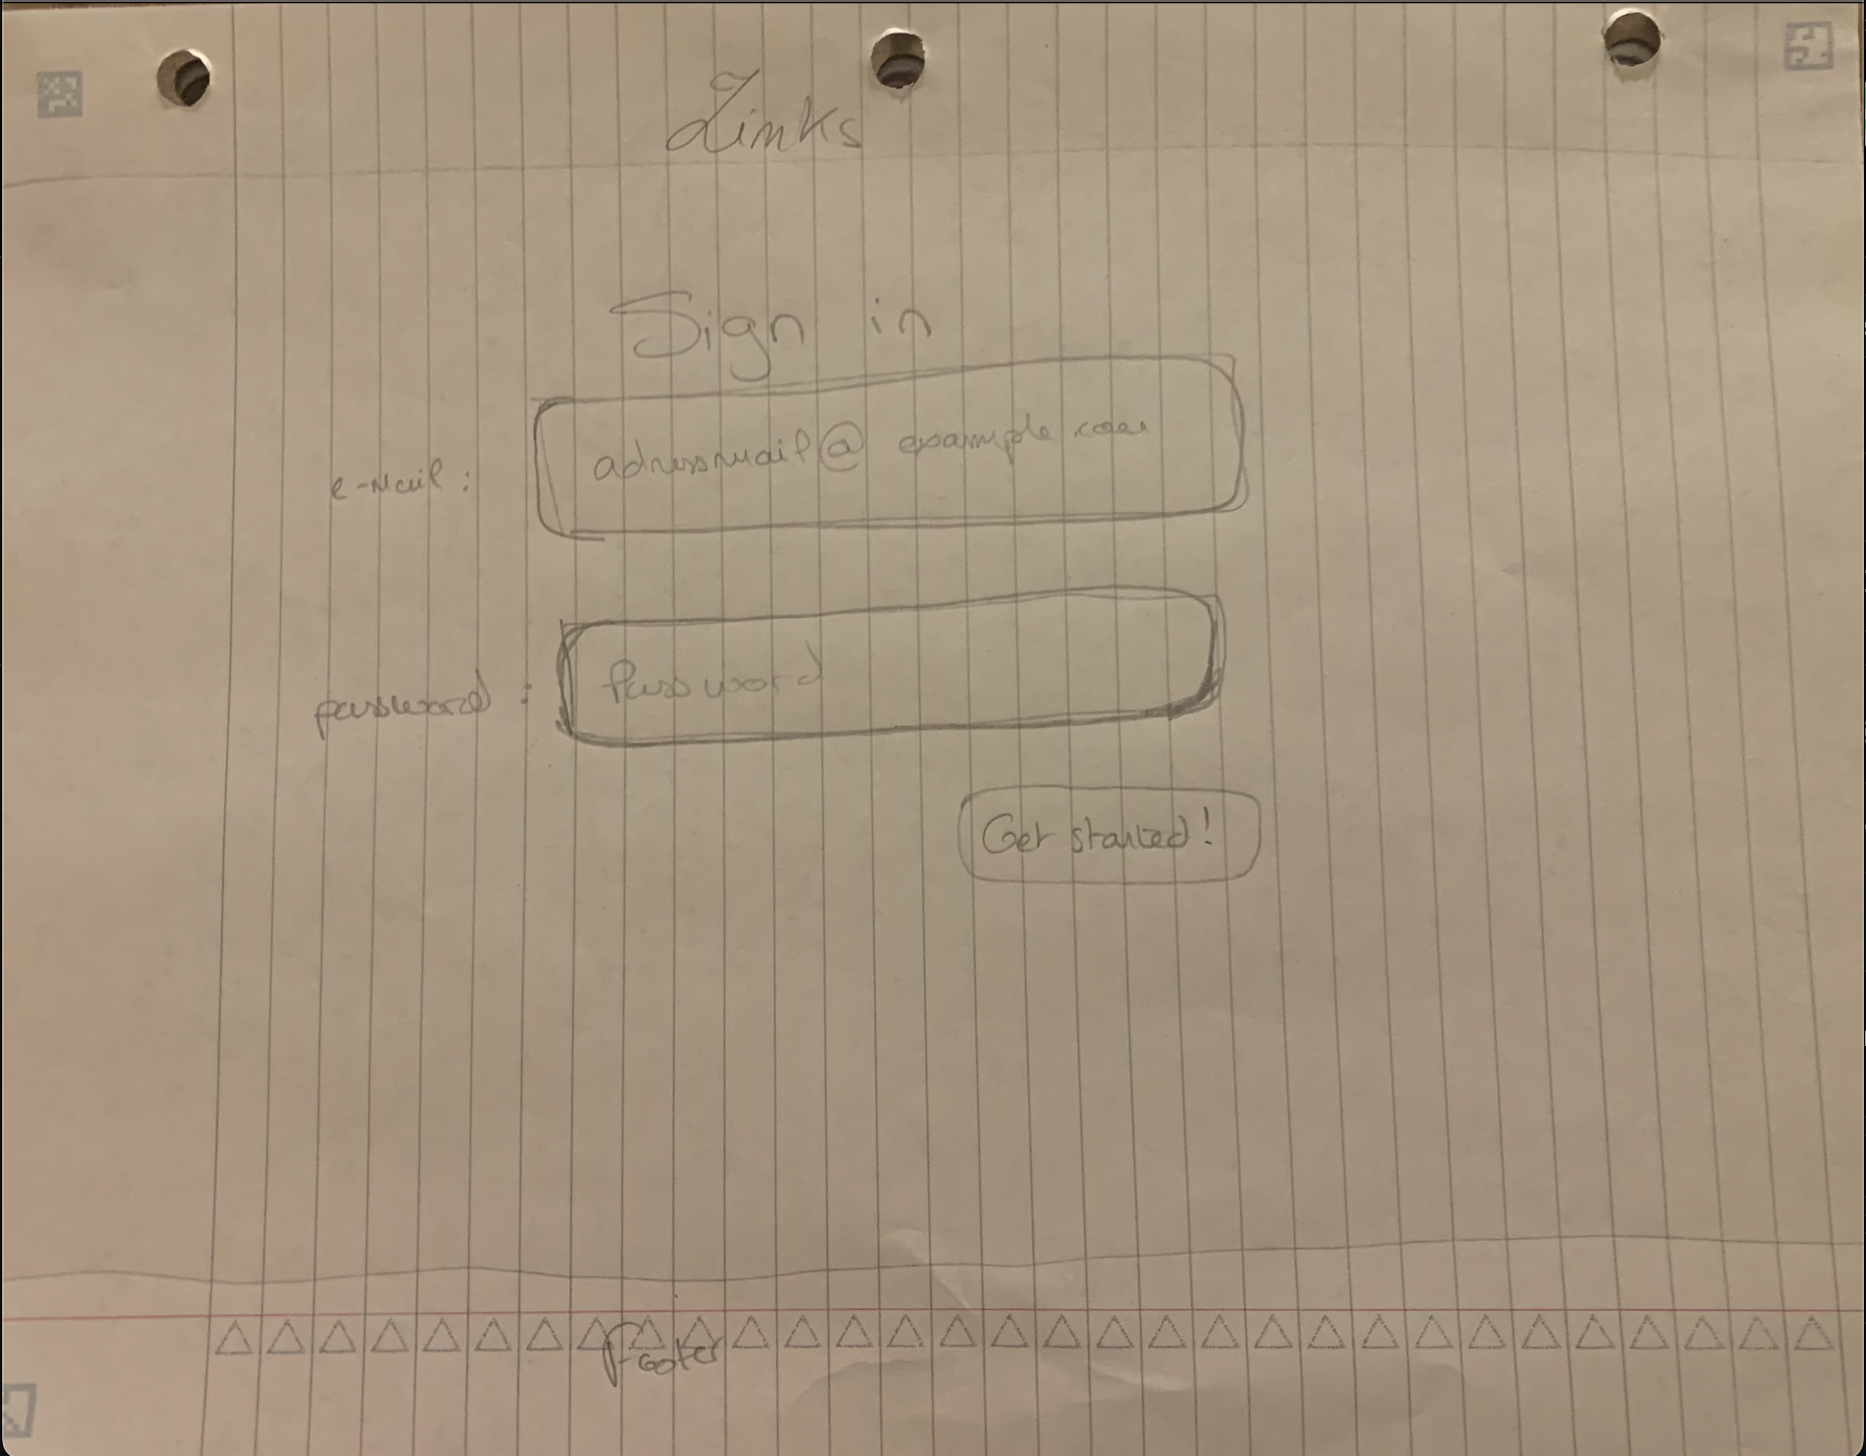 Links
Sign in
e-Mail :
adressmail@ example.com
password :
Password
Get started!
Footer